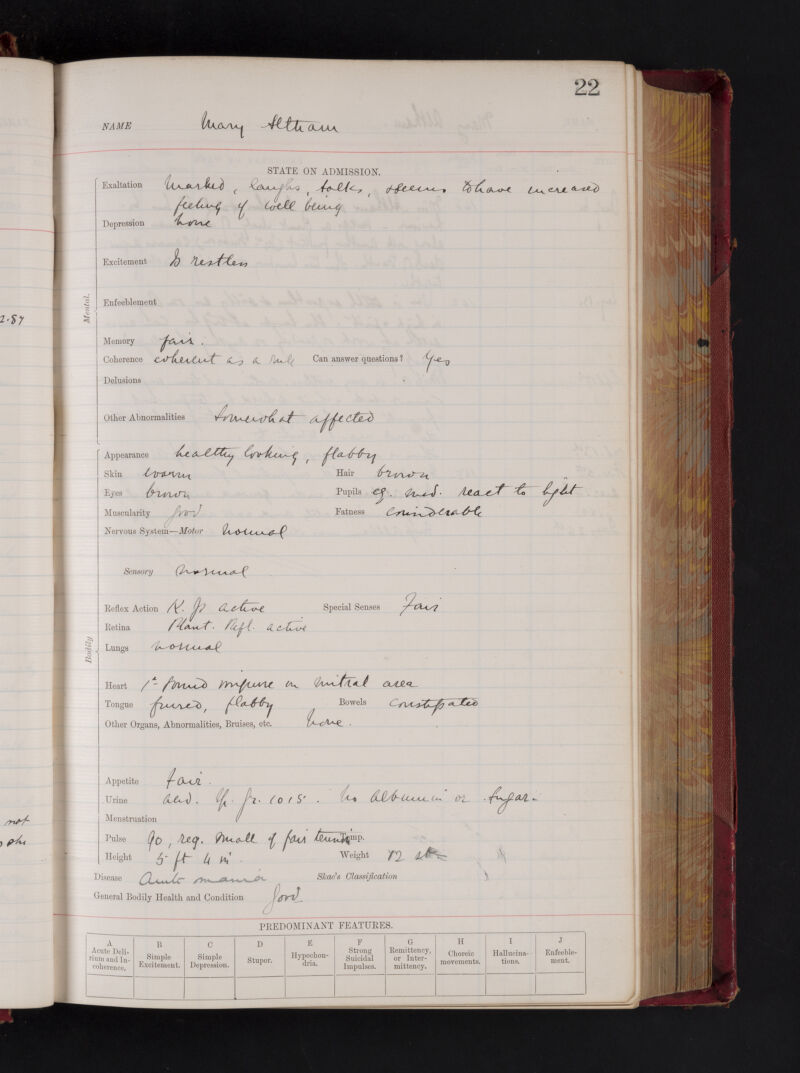 22
NAME Mary Altham
STATE ON ADMISSION.
Exaltation Marked, laughs, talks, seems to have increased
feeling of well being
Depression None
Excitement Is restless
Mental.
Enfeeblement
2.87
Memory fair.
Coherence coherent as a rule Can answer questions? Yes
Delusions
Other Abnormalities Somewhat affected
Appearance healthy looking, flabby
Skin warm Hair brown
Eyes brown Pupils eq. mod. react to light
Muscularity good Fatness considerable
Nervous System—Motor Normal
Sensory Normal
Reflex Action K. Js active Special Senses Fair
Retina Plant. Refl. active
Bodily
Lungs normal
Heart 1st sound impure in mitral area
Tongue furred, flabby Bowels Constipated
Other Organs, Abnormalities, Bruises, etc. None.
Appetite Fair.
Urine Acid. Sp. gr. 1015. No Albumin or Sugar.
not
Menstruation
Pulse 90, reg. small of fair tension Temp.
Height 5 ft 4 in Weight 12 st
Disease Acute mania Skae's Classification
General Bodily Health and Condition Good
PREDOMINANT FEATURES.
A B C D E F G H I J
Acute Delirium and Incoherence. Simple Excitement. Simple Depression. Stupor. Hypochondria. Strong Suicidal Impulses. Remittency, or Intermittency. Choreic movements. Hallucinations. Enfeeblement.